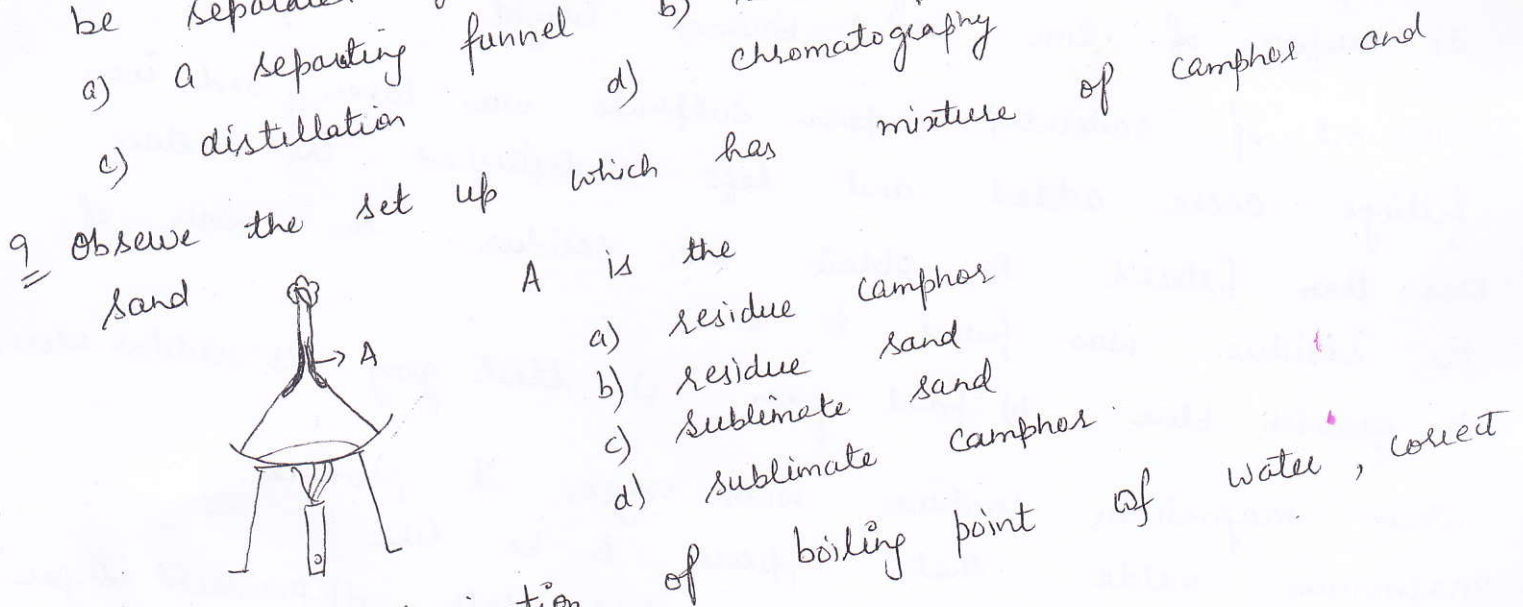 be
a) a separting funnel b)
c) distillation d) chromatography
9 Observe the set up which has mixture of camphor and
sand A is the
→ A
a) residue camphor
b) residue sand
c) sublimate sand
d) sublimate camphor
of boiling point of water, correct